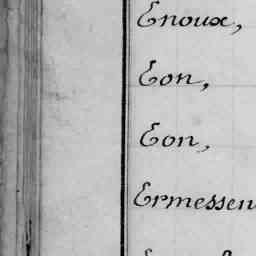 Enoux,
Eon,
Eon,
Ermessen